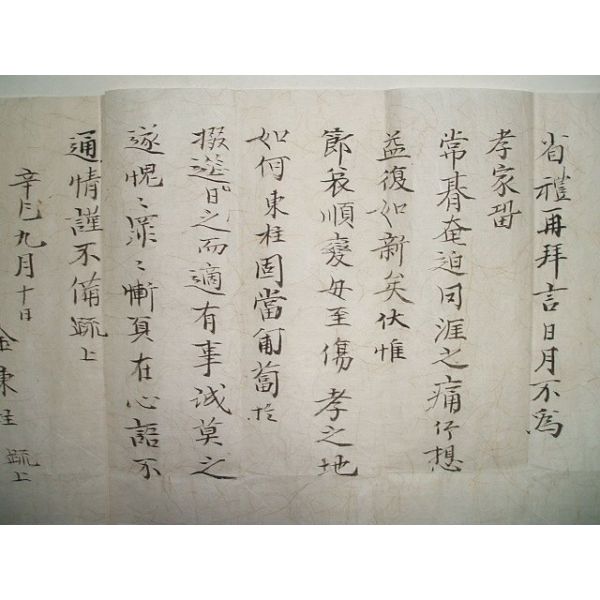 省禮再拜言日月不爲
孝家留
常朞奄迫罔涯之痛仰想
益復如新矣伏惟
節哀順變毋至傷孝之地
如何東柱固當匍匐於
掇筵日之而適有事誠莫之
遂愧〻罪〻慚負在心語不
通情謹不備疏上
辛巳九月十日
金東柱 疏上